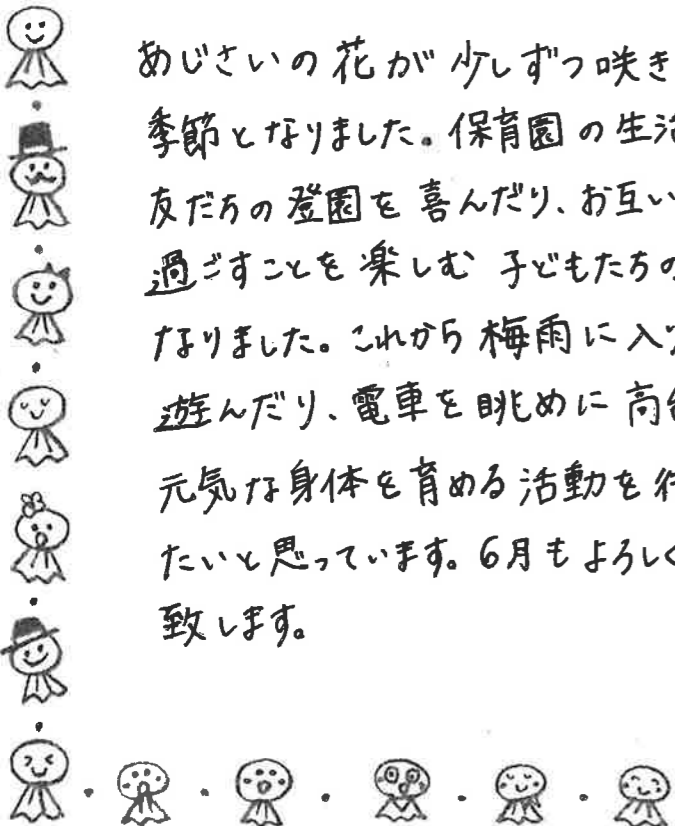 あじさいの花が少しずつ咲き
季節となりました。保育園の生活
友だちの登園を喜んだり、お互い
過ごすことを楽しむ子どもたちの
なりました。これから梅雨に入り
遊んだり、電車を眺めに高台
元気な身体を育める活動を行
たいと思っています。6月もよろしく
致します。